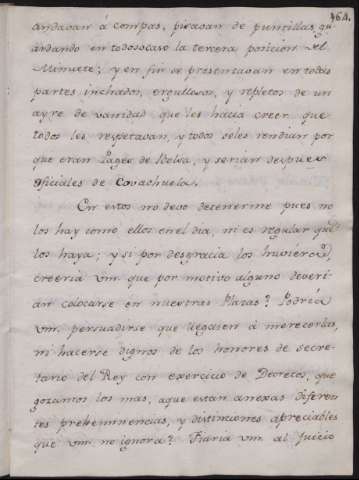 164.
andavan á compas, pisavan de puntillas, gu
ardando en todos caso la tercera posicion del
Minuete; y en fin se presentavan en todas
partes inchados, ergullosos, y repletos de un
ayre de vanidad que les hacia creer que
todos les respetavan, y todos seles rendian por
que eran Pages de Bolsa, y serian despues
oficiales de Covachuela.
En estos no devo detenerme pues no
los hay como ellos en el dia, ni es regular que
los haya; y si por desgracia los huviera,
creeria vm. que por motivo alguno deveri
an colocarse en nuestras Plazas? Podria
vm. persuadirse que llegasen á merecerlas,
ni hacerse dignos de los honores de secre
tario del Rey con exercicio de Decretos, que
gozamos los mas, aque estan anexas diferen
tes preheminencias, y distinciones apreciables
que vm. no ignora? Fiaria vm. al Juicio